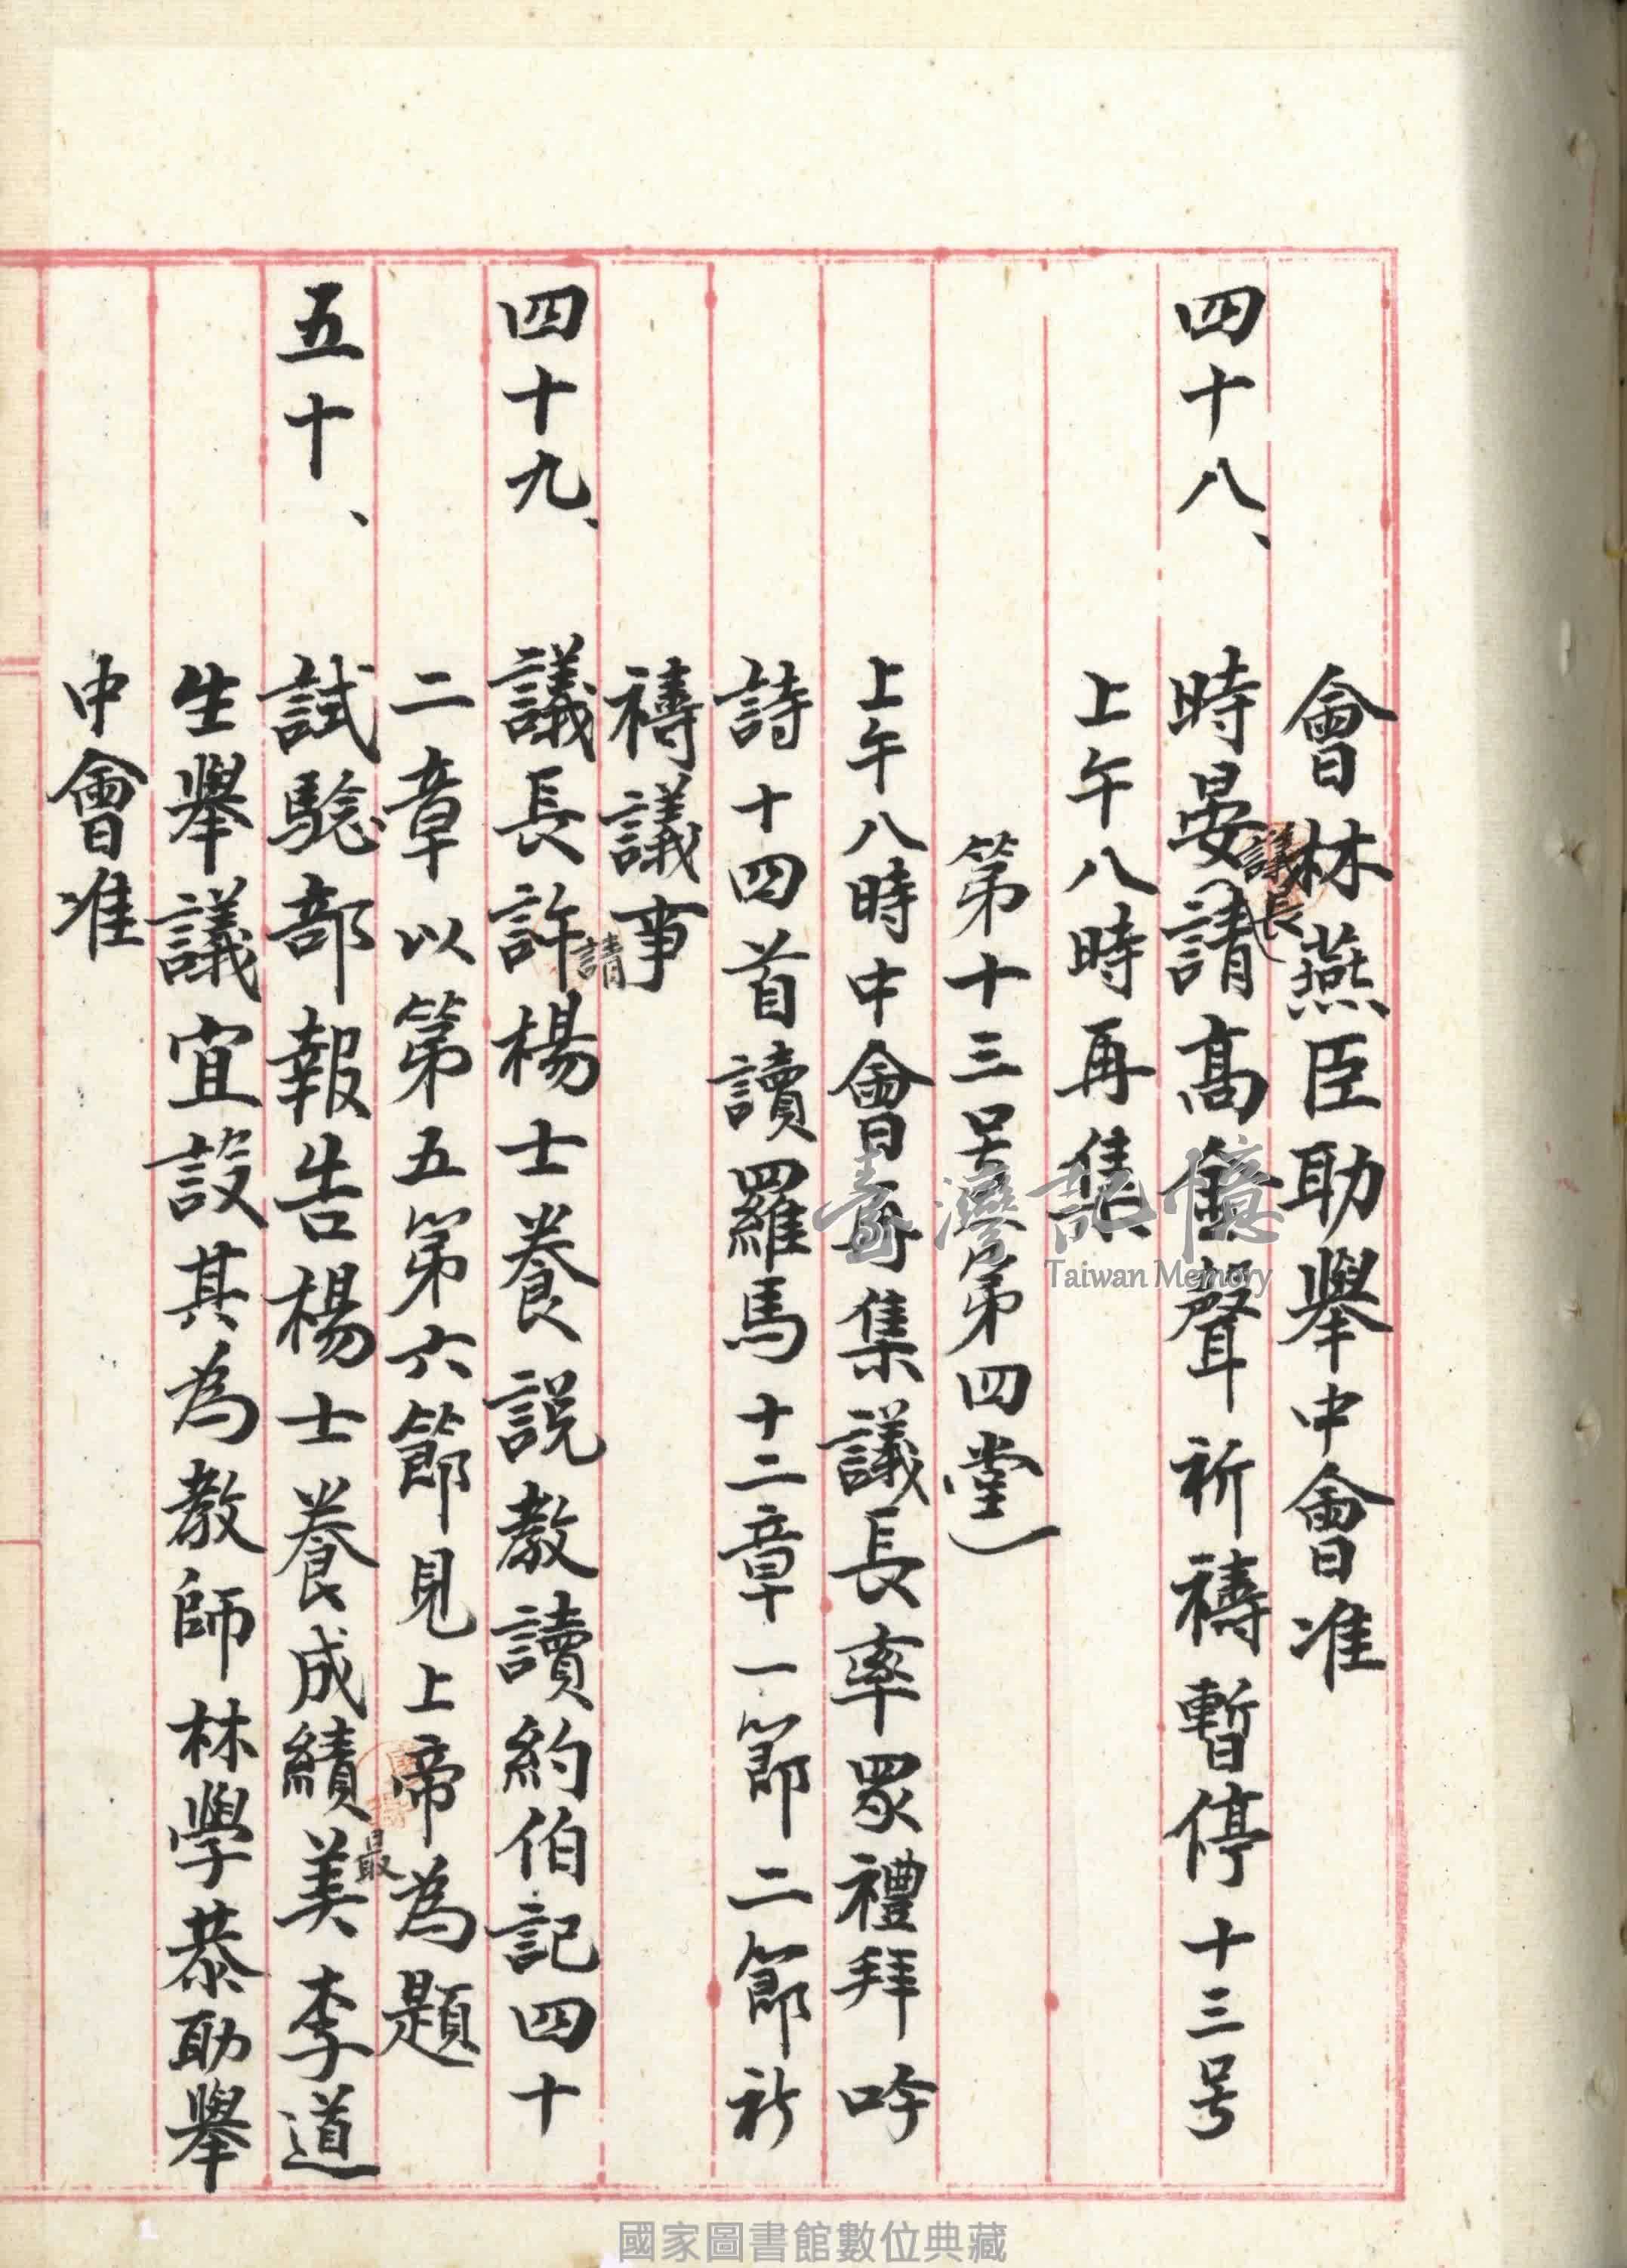 會林燕臣助舉中會准
四十八、時晏議長請高金聲祈禱暫停十三号
上午八時再集
第十三号(第四堂)
上午八時中會再集議長率眾禮拜吟
詩十四首讀羅馬十二章一節二節祈
禱議事
四十九、議長許請楊士養說教讀約伯記四十
二章以第五第六節見上帝為題
五十、試驗部報告楊士養成績最美李道
生舉議宜設其為教師林學恭助舉
中會准
臺灣記憶
Taiwan Memory
國家圖書館數位典藏